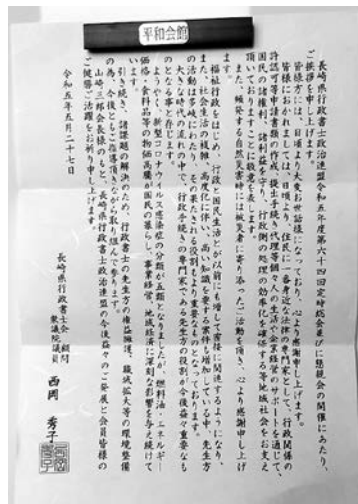 平和会館
長崎県行政書士政治連盟令和五年度第六十四回定時総会並びに懇親会の開催にあたり、
ご挨拶を申し上げます。
皆様方には、日頃より大変お世話様になっており、心より感謝申し上げます。
皆様におかれましては、日頃より、住民に一番身近な法律の専門家として、行政関係の
許認可等申請書類の作成、提出手続き代理等個々人の生活や企業経営のサポートを通じて、
国民の諸権利、諸利益を守り、行政側の処理の効率化を確保する等地域社会をお支え
頂いておりますことに敬意を表します。
また、頻発する自然災害時には被災者に寄り添ったご活動を頂き、心より感謝申し上げ
ます。
福祉行政をはじめ、行政と国民生活とが以前にも増して密接に関連するようになり、
また、社会生活の複雑、高度化に伴い、高い知識を要する案件も増加している中、先生方
の活動は多岐にわたり、その果たされる役割もより重要なものとなっております。
大きな時代の流れの中で、行政手続きの専門家である先生方の役割が今後益々重要なも
のとなる事と存じます。
ようやく、新型コロナウイルス感染症の分類が五類となりましたが、燃料油・エネルギー
価格・食料品等の物価高騰が国民の暮らし、事業経営、地域経済に深刻な影響を与え続けて
います。
引き続き、諸課題の解決のため、行政書士の先生方の権益擁護、職域拡大等の環境整備
の為、今後ともご指導を頂きながら取り組んで参ります。
山崎三郎会長様のもと、長崎県行政書士政治連盟の今後益々のご発展と会員皆様の
ご健勝ご活躍をお祈り申し上げます。
令和五年五月二十七日
長崎県行政書士会 顧問
衆議院議員 西岡 秀子